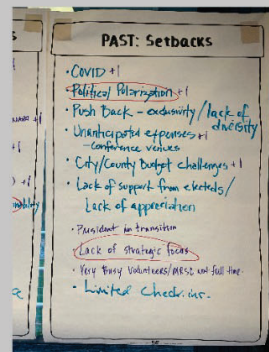 PAST: Setbacks
• COVID +1
• Political Polarization +1
• Push Back - exclusivity / lack of
diversity
• Unanticipated expenses +1
- conference venues
• City/County Budget challenges +1
• Lack of support from electeds/
Lack of appreciation
• President in transition
• Lack of strategic focus
• Very Busy Volunteers/MRSC not full time
• Limited check-ins.